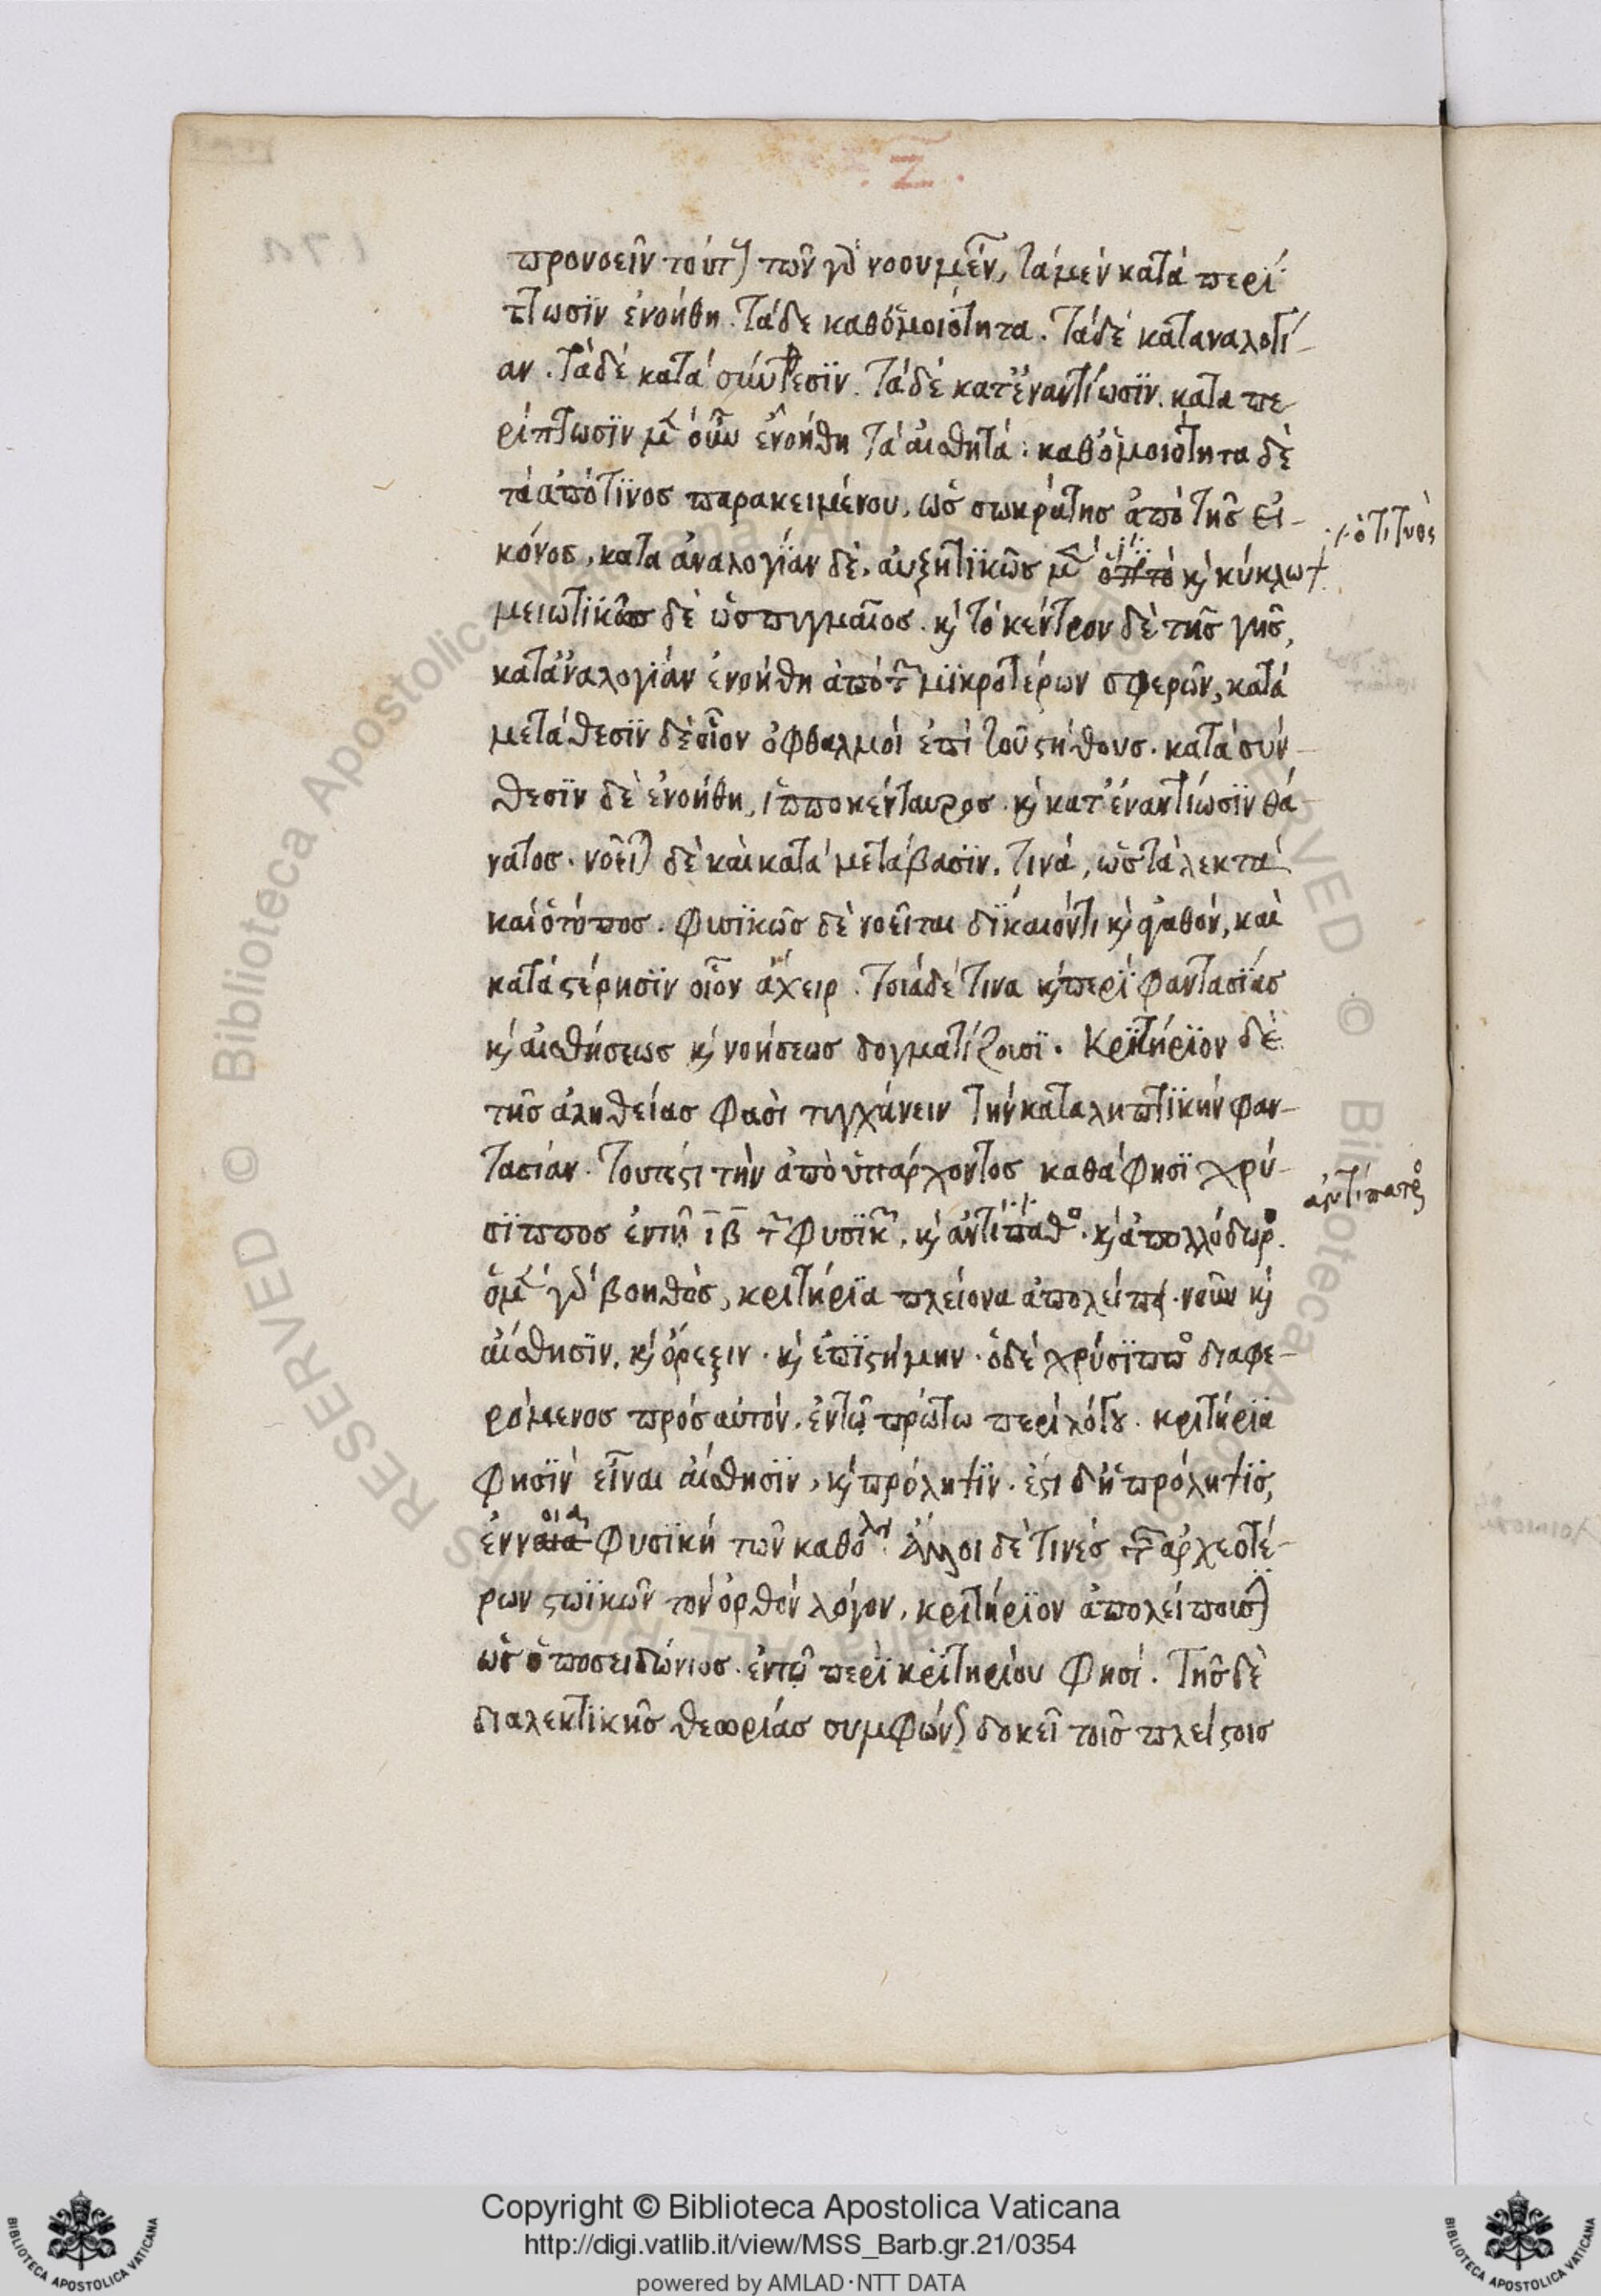 .Z.
προνοεῖν τούτ(ων) τῶν γὰρ νοουμέν(ων), τάμεν κατά περί
πτωσϊν ἐνοήθη. τάδε καθ'ὁμοιότητα. τάδέ καταναλογί-
αν. τάδέ κατά σύνθεσϊν. τάδέ κατ'ἐναντίωσϊν. κατα πε
ρίπτωσϊν μὲν οὖν ἐνοήθη τά ἀισθητά· καθ'ὁμοιότητα δὲ
τά ἀπό τϊνος παρακειμένου, ὡς σωκράτης ἀπό τῆς εἰ-
κόνος, κατα ἀναλογίαν δὲ, ἀυξητϊκῶς μὲν ὁ πιτο κ(αὶ) κύκλωψ
ὁ τιτυὸς
μειωτϊκῶς δὲ ὡς πιγμαῖος. κ(αὶ) τό κέντρον δὲ τῆς γῆς,
κατἀναλογίαν ἐνοήθη ἀπό τῶν μϊκροτέρων σφερῶν, κατά
μετάθεσϊν δὲ οἷον ὀφθαλμοί ἐπί τοῦ στήθους. κατά σύν-
θεσϊν δὲ ἐνοήθη, ἱπποκένταυρος. κ(αὶ) κατ'ἐναντίωσϊν θά
νατος. νοεῖτ(αι) δὲ καὶ κατά μετάβασϊν, τινά, ὡς τά λεκτά
καί ὁ τόπος. φυσϊκῶς δὲ νοεῖται δϊκαιόντι κ(αὶ) ἀγαθόν, καὶ
κατά στέρησϊν οἷον ἄχειρ. τοιάδέ τινα κ(αὶ) περί φαντασϊάς
κ(αὶ) ἀισθήσεως κ(αὶ) νοήσεως δογματίζουσϊ. Κρϊτήρϊον δὲ
τῆς ἀληθείας φασὶ τυγχάνειν τήν καταληπτϊκήν φαν-
τασίαν. τουτέστι τὴν ἀπὸ ὑπάρχοντος καθά φησϊ χρύ-
σϊππος ἐν τῇ ιβ τῶν φυσϊκ(ῶν), κ(αὶ) ἀντίπαθο(ς). κ(αὶ) ἀπολλόδωρο(ς).
ἀντίπατρο(ς)
ὁ μὲν γὰρ βοηθὸς, κριτήρϊα πλείονα ἀπολείπει. νοῦν κ(αὶ)
ἀίσθησϊν, κ(αὶ) ὄρεξιν. κ(αὶ) ἐπϊστήμην. ὁ δέ χρύσϊππο(ς) διαφε-
ρόμενος πρός αὐτόν. ἐν τῷ πρώτω περί λόγου. κριτήρϊα
φησϊν εἶναι ἀίσθησϊν, κ(αὶ) πρόληψϊν. ἔστι δ'ἡ πρόληψϊς,
ἔννοια φυσϊκή τῶν καθόλου. ἄλλοι δὲ τινές τῶν ἀρχεοτέ-
ρων στωϊκῶν τόν ὀρθόν λόγον, κριτήρϊον ἀπολείπουσ(ιν)
ὡς ὁ ποσειδώνιος. ἐν τῷ περί κρϊτηρίου φησί. τῆς δὲ
διαλεκτϊκῆς θεωρίας συμφών(ως) δοκεῖ τοῖς πλείστοις
Copyright © Biblioteca Apostolica Vaticana
http://digi.vatlib.it/view/MSS_Barb.gr.21/0354
powered by AMLAD·NTT DATA